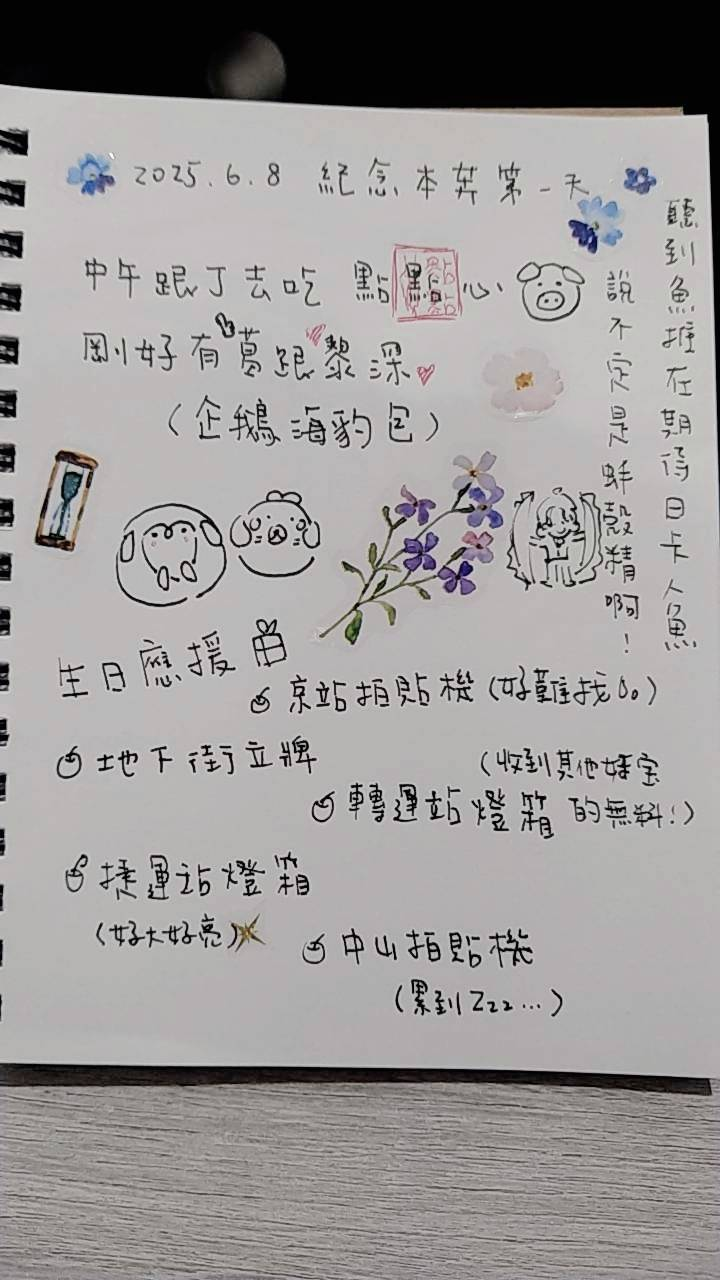 2025.6.8 紀念本莽第一天
中午跟丁去吃 點點心
剛好有葛跟黎深
(企鵝海豹包)
聽到魚推在期待日卡人魚
說不定是蚌殼精啊!
生日應援
京站拍貼機(好難找)
地下街立牌
轉運站燈箱
(收到其他婦宝
的無料!)
捷運站燈箱
(好大好亮)
中山拍貼機
(累到Zzz...)